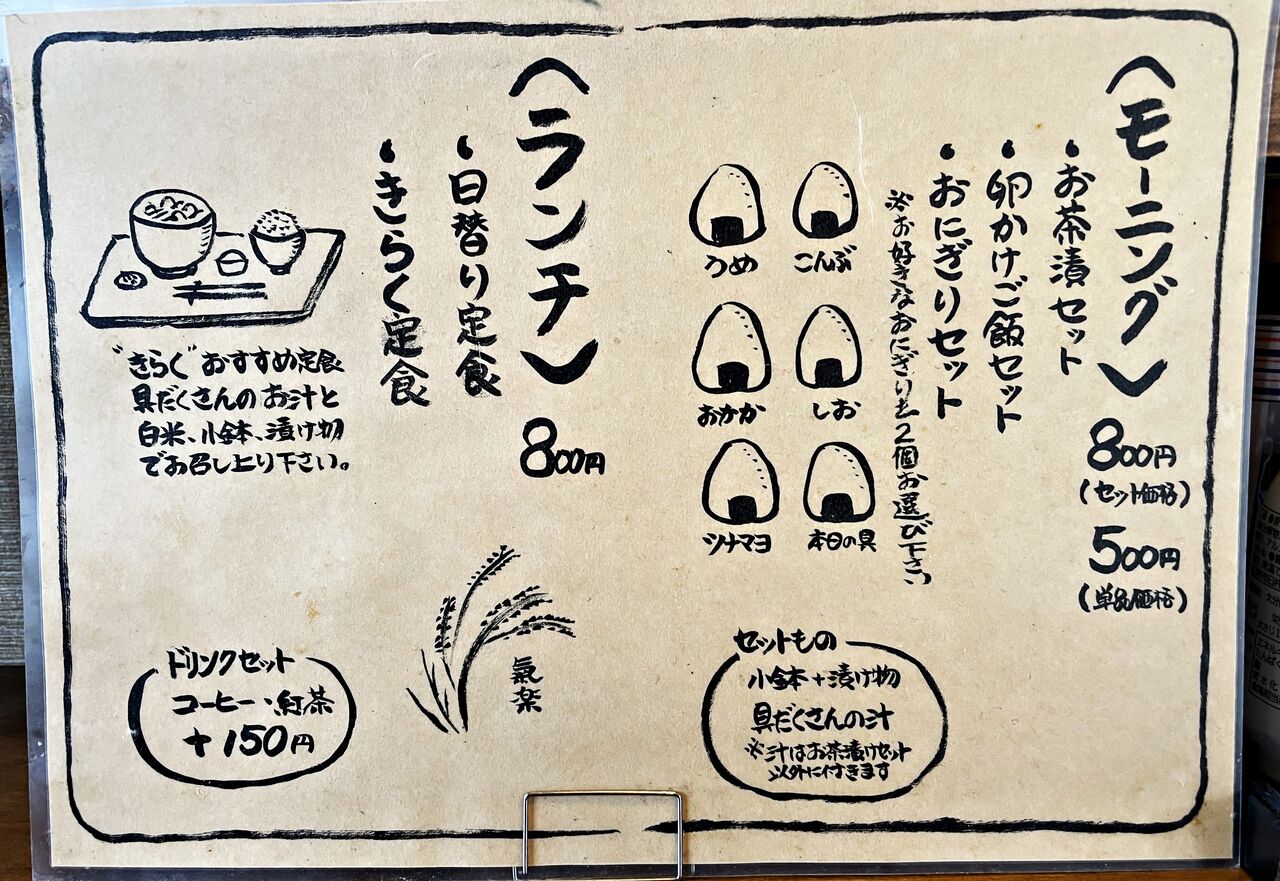 〈モーニング〉
800円
(セット価格)
500円
(単品価格)
・お茶漬セット
・卵かけご飯セット
・おにぎりセット
※お好きなおにぎりを2個お選び下さい
こんぶ
うめ
しお
おかか
本日の具
ツナマヨ
セットもの
小鉢+漬け物
具だくさんの汁
※汁はお茶漬けセット
以外に付きます
〈ランチ〉
800円
・日替り定食
・きらく定食
"きらく"おすすめ定食
具だくさんのお汁と
白米、小鉢、漬け物
でお召し上り下さい。
氣楽
ドリンクセット
コーヒー・紅茶
+150円